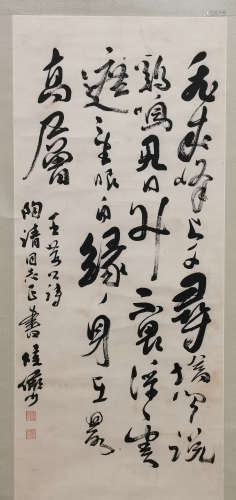 飛來峰上千尋塔聞說
鷄鳴見日升不畏浮雲
遮望眼自緣身在最
高層
王荊公詩
同志正書 陸儼少